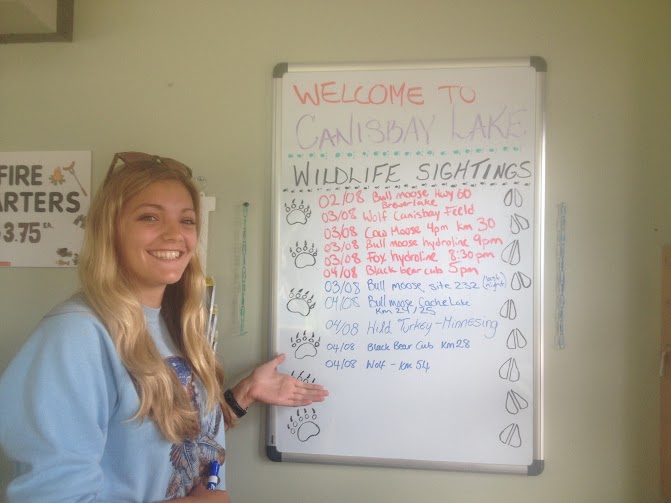 WELCOME TO
CANISBAY LAKE
WILDLIFE SIGHTINGS
02/08 Bull moose Hwy 60
Brewer lake
03/08 Wolf Canisbay Field
03/08 Cow Moose 4pm km 30
03/08 Bull moose hydroline 9pm
03/08 Fox hydroline 8:30pm
04/08 Black bear cub 5pm
03/08 Bull moose, site 232 (last night)
04/08 Bull moose Cache Lake
Km 24/25
04/08 Wild Turkey - Minnesing
04/08 Black Bear Cub Km 28
04/08 Wolf - Km 54
FIRE
ARTERS
$3.75 EA.